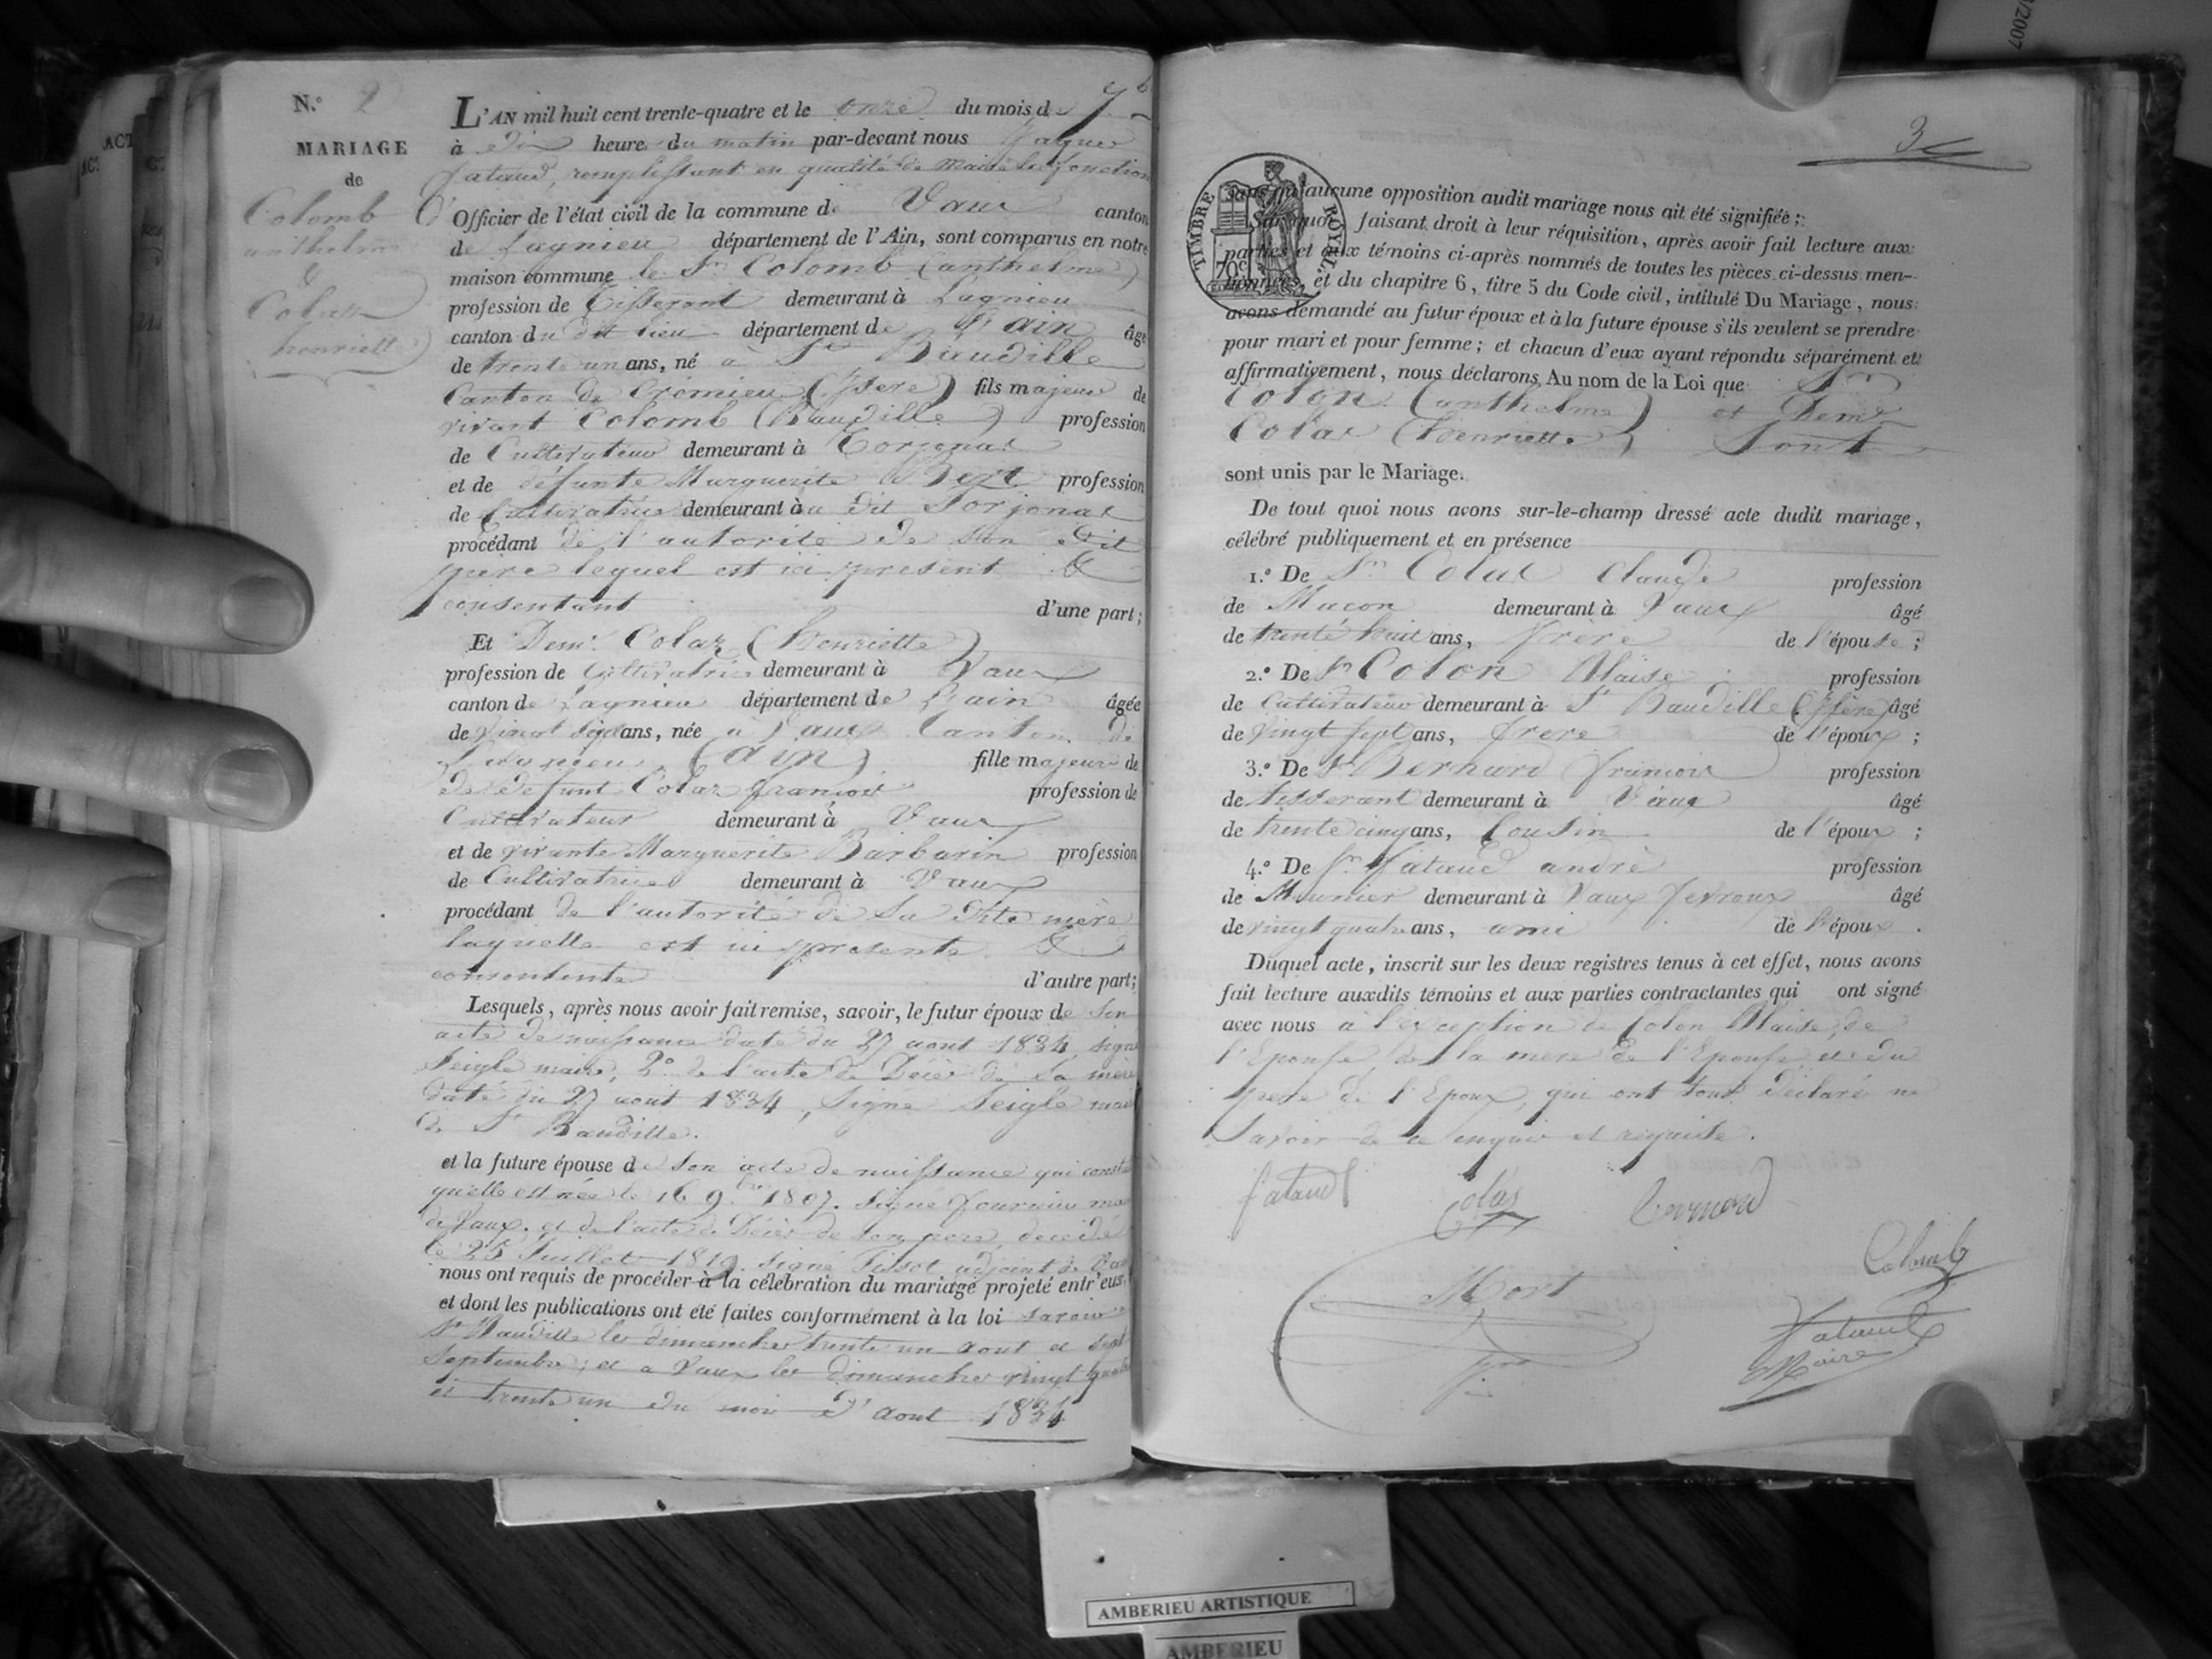 N.º 2
MARIAGE
de
Colomb
anthelme
&
Colas
henriette
L'AN mil huit cent trente-quatre et le onze du mois de 7b
à dix heures du matin par-devant nous Jaques
fataud, remplissant en qualité de Maire les fonctions
d'Officier de l'état civil de la commune de Vaux canton
de Lagnieu département de l'Ain, sont comparus en notre
maison commune le Sr Colomb (anthelme)
profession de Tisserant demeurant à Lagnieu
canton du dit lieu département de L'ain âgé
de trente un ans, né à St Baudille
Canton de Crémieu (Isere) fils majeur de
vivant Colomb (Baudille) profession
de Cultivateur demeurant à Torjonas
et de défunte Marguerite Bert profession
de Cultivatrice demeurant au dit Torjonas
procédant de l'autorité de son dit
père lequel est ici present &
consentant d'une part;
Et Demlle Colas (henriette)
profession de Cultivatrice demeurant à Vaux
canton de Lagnieu département de L'ain âgée
de vingt six ans, née à Vaux Canton de
Lagnieu (ain) fille majeure de
de défunt Colas françois profession de
Cultivateur demeurant à Vaux
et de vivante Marguerite Barbarin profession
de Cultivatrice demeurant à Vaux
procédant de l'autorité de sa dite mère
laquelle est ici presente &
consentente d'autre part;
Lesquels, après nous avoir fait remise, savoir, le futur époux de son
acte de naissance daté du 27 aout 1834, signé
Seigle maire, 2º de l'acte de Décès de sa mère
daté du 27 aout 1834, signé Seigle maire
de St Baudille.
et la future épouse de son acte de naissance qui conste
qu'elle est née le 16 9bre 1807. signé fournier maire
de Vaux. et de l'acte de Décès de son pere, décédé
le 25 Juillet 1819. signé Tissot adjoint de Vaux
nous ont requis de procéder à la célébration du mariage projeté entr'eux,
et dont les publications ont été faites conformément à la loi savoir
St Baudille les dimanches trente un aout et sept
septembre; et a Vaux les dimanches vingt quatre
et trente un du mois d'aout 1834
3
TIMBRE ROYAL
70c
sans qu'aucune opposition audit mariage nous ait été signifiée;
Sur quoi faisant droit à leur réquisition, après avoir fait lecture aux
parties et aux témoins ci-après nommés de toutes les pièces ci-dessus men-
tionnées, et du chapitre 6, titre 5 du Code civil, intitulé Du Mariage, nous
avons demandé au futur époux et à la future épouse s'ils veulent se prendre
pour mari et pour femme; et chacun d'eux ayant répondu séparément et
affirmativement, nous déclarons Au nom de la Loi que Sr
Colon (anthelme) et Demlle
Colas (henriette) sont
sont unis par le Mariage.
De tout quoi nous avons sur-le-champ dressé acte dudit mariage,
célébré publiquement et en présence
1.º De Sr Colas Claude profession
de Macon demeurant à Vaux âgé
de trente huit ans, frère de l'épouse;
2.º De Sr Colon Blaise profession
de Cultivateur demeurant à St Baudille (Isère) âgé
de vingt sept ans, frere de l'époux;
3.º De Sr Bernard françois profession
de tisserant demeurant à Vaux âgé
de trente cinq ans, Cousin de l'époux;
4.º De Sr fataud andrè profession
de Meunier demeurant à Vaux fevroux âgé
de vingt quatre ans, ami de l'époux.
Duquel acte, inscrit sur les deux registres tenus à cet effet, nous avons
fait lecture auxdits témoins et aux parties contractantes qui ont signé
avec nous à l'exception de Colon Blaise, de
l'Epouse, de la mere de l'Epouse, et du
pere de l'Epoux, qui ont tous Déclaré ne
savoir de ce enquis et requise.
fataud Colas bernard
Colomb
Mort
fataud
Maire
/2007
AMBERIEU ARTISTIQUE
AMBERIEU